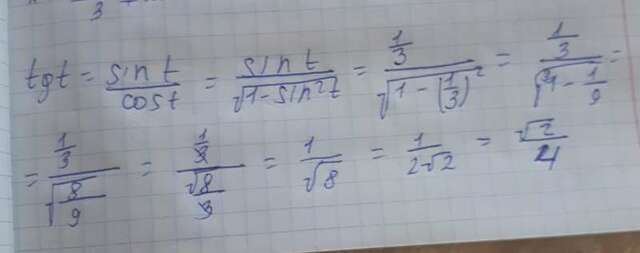 3
tgt = sin t / cos t = sin t / √(1-sin²t) = (1/3) / √(1-(1/3)²) = (1/3) / √(1-1/9) =
= (1/3) / √(8/9) = (1/3) / (√8/3) = 1/√8 = 1/(2√2) = √2/4